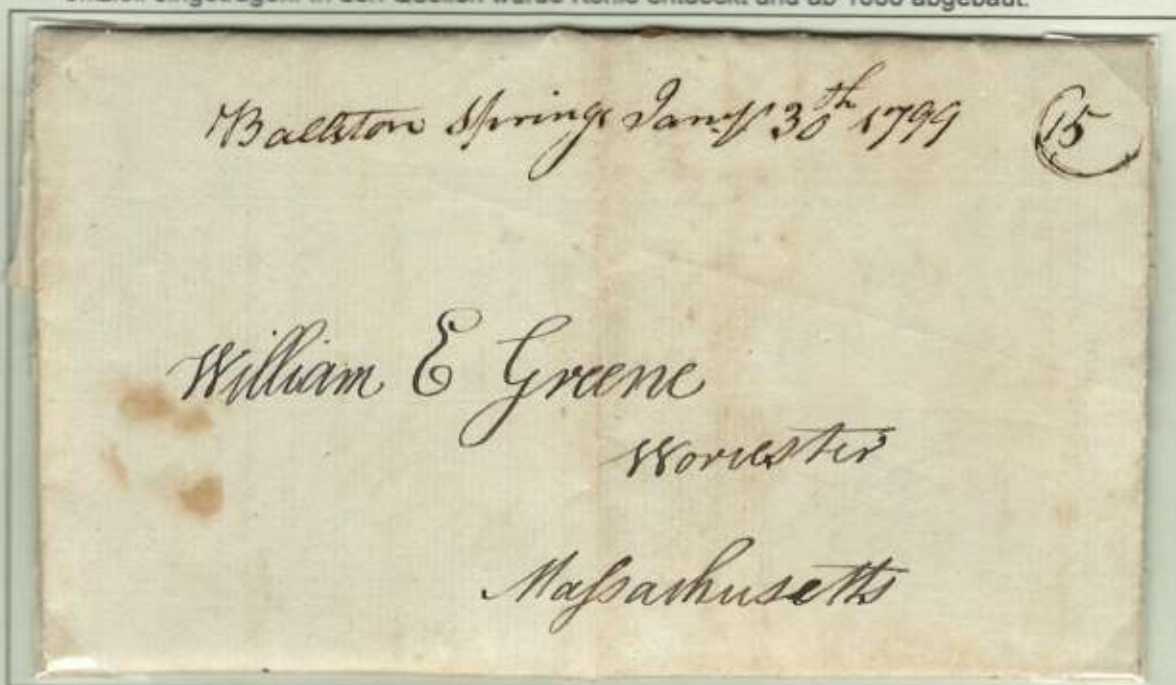 Ballston Springs Jany 30th 1799
15
William E Greene
Worcester
Massachusetts